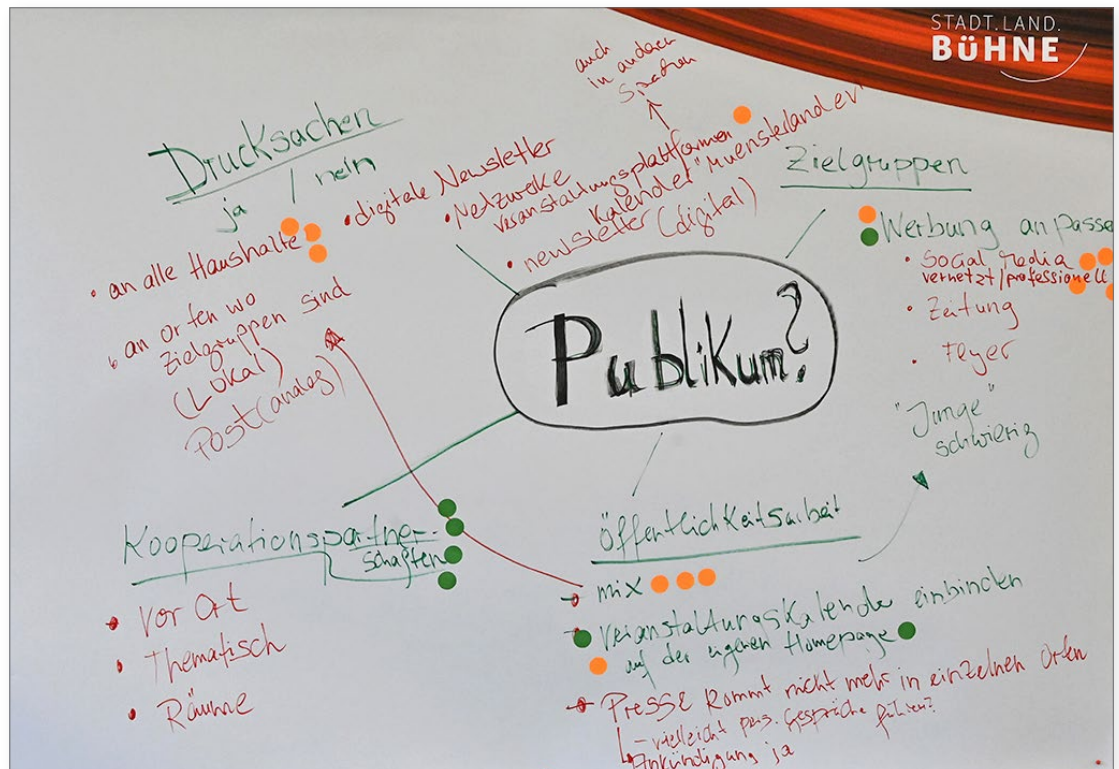 STADT.LAND.
BÜHNE
auch
in anderen
Sprachen
Drucksachen
ja / nein
• an alle Haushalte
• an orten wo
Zielgruppen sind
(Lokal)
Post (analog)
• digitale Newsletter
• Netzweke
Veranstaltungsplattformen
Kalender "Muensterland ev
• newsletter (digital)
Zielgruppen
Werbung anpasse
• Social Media
vernetzt/professionell
• Zeitung
• Flyer
"Junge"
schwierig
Publikum?
Kooperationspartner-
schaften
• Vor Ort
• Thematisch
• Räume
Öffentlichkeitsarbeit
• mix
• Veranstaltungskalender einbinden
auf der eigenen Homepage
• Presse kommt nicht mehr in einzelnen Orten
- vielleicht pers. Gespräche führen?
Ankündigung ja